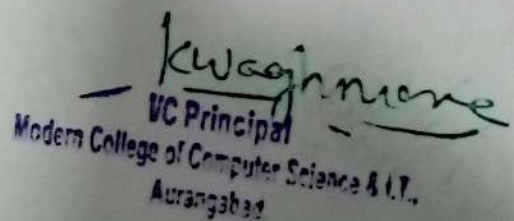 KWaghmare
I/C Principal
Modern College of Computer Science & I.T.,
Aurangabad